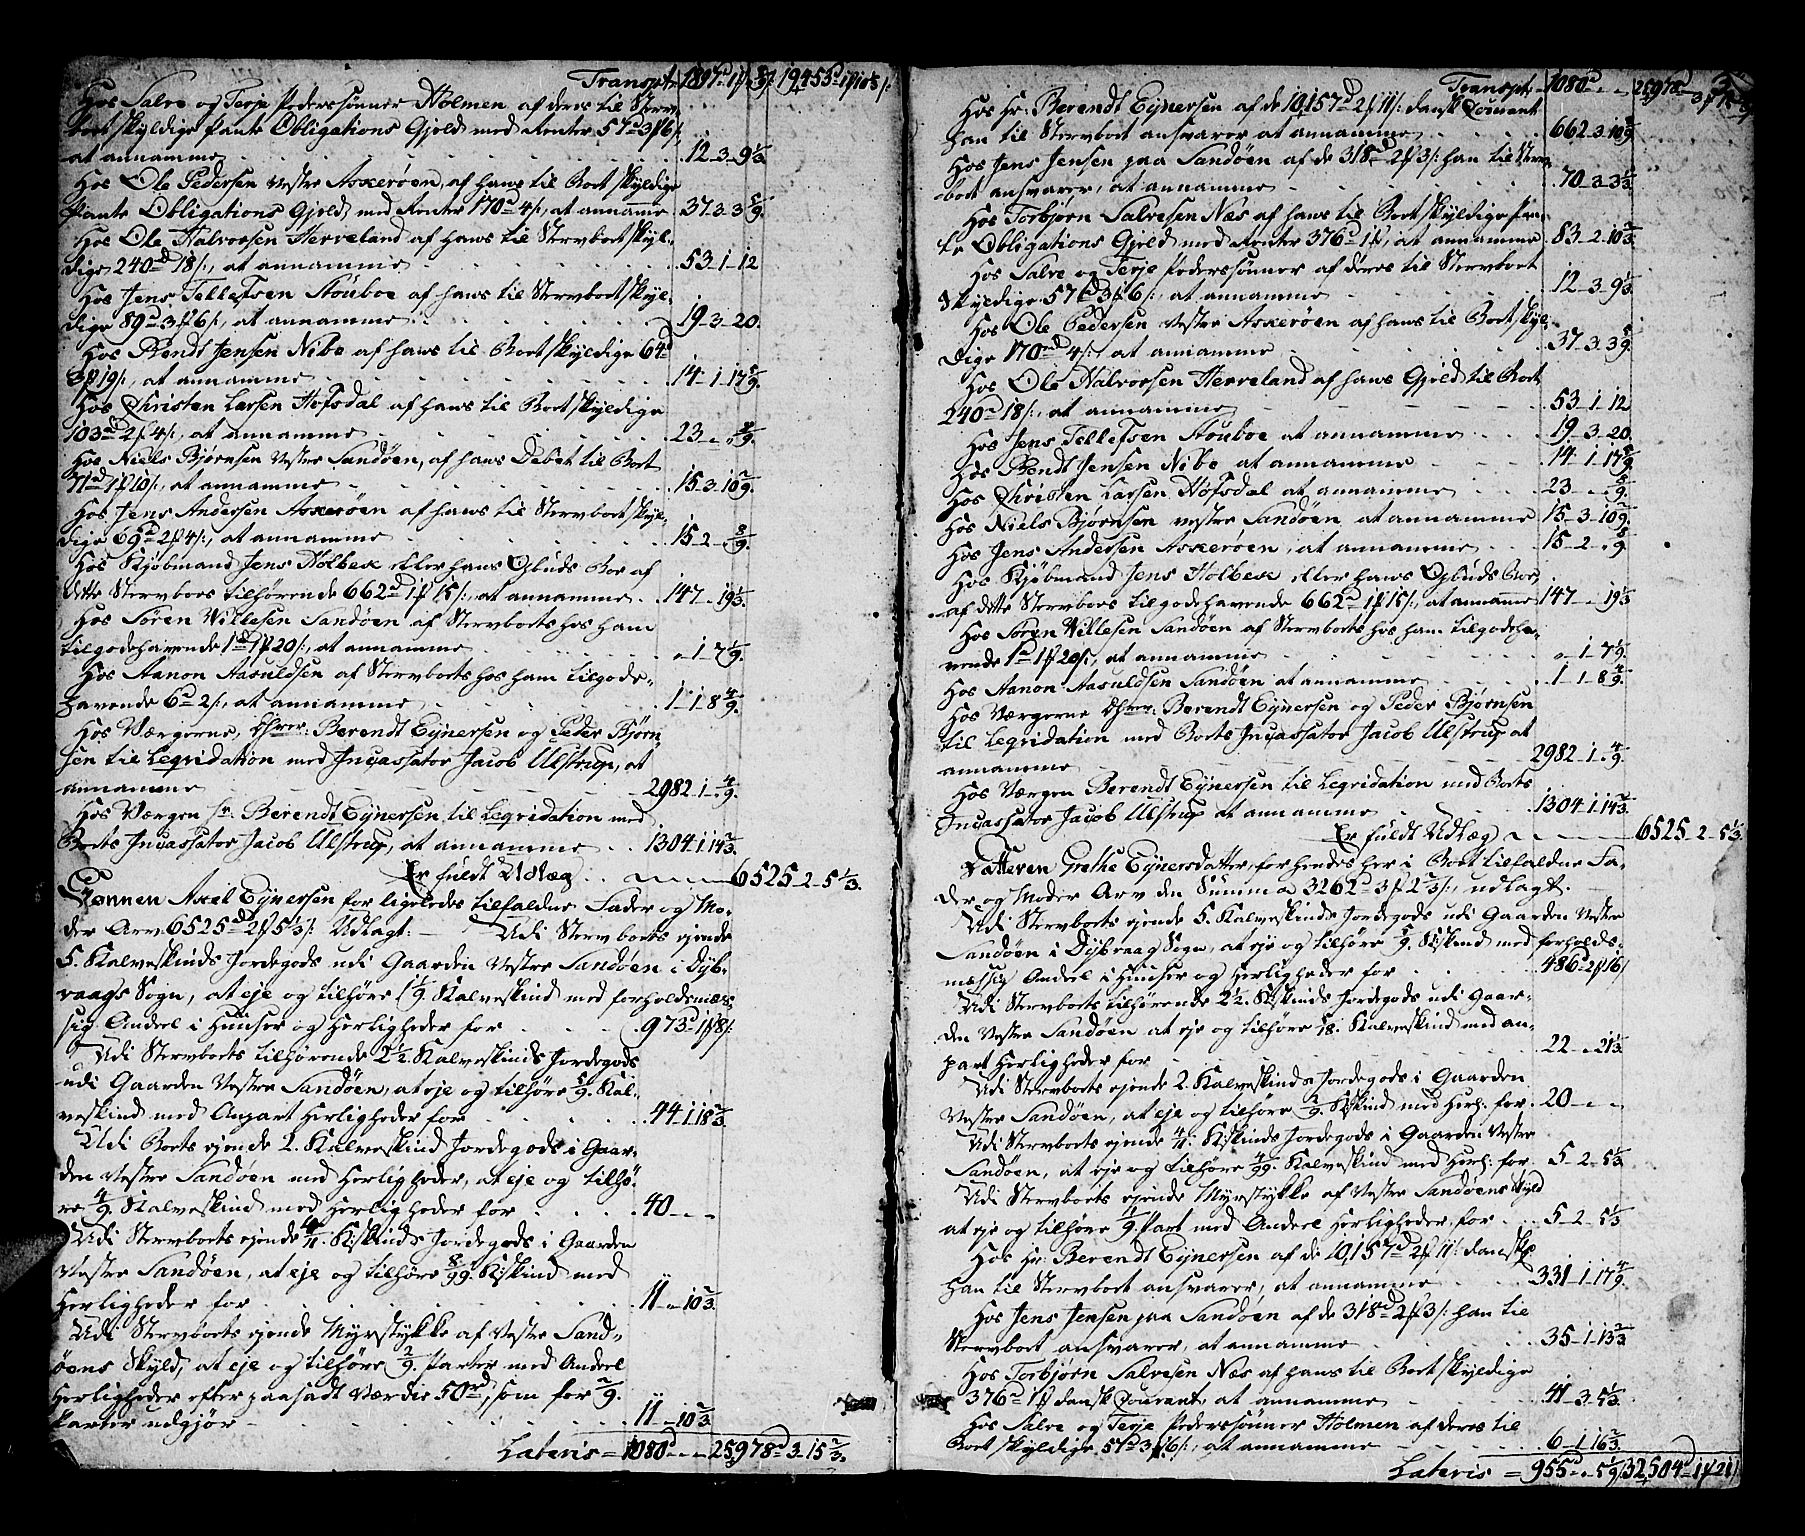 Transpt 1897d 1 19455d 1 10
Hos Salve og Terje Pedersønner Holmen af deres til Sterv-
boet skyldige Pante Obligations Gjeld med Renter 57d 3/6/:
at annamme 12-3-9 1/3
Hos Ole Pedersen Vestre Askerøen, af hans til Boet skyldige
Pante Obligations Gjeld med Renter 170d 4/:, at annamme 37-3-3 5/9.
Hos Ole Halvorsen Herreland af hans til Stervboet skyl-
dige 240d 18/:, at annamme 53-1-12
Hos Jens Tellefsen Stouboe af hans til Stervboet skyl-
dige 89d 3/6/:, at annamme 19-3-20.
Hos Bendt Jensen Nibe af hans til Boet skyldige 64d
3/19/:, at annamme 14-1-17
Hos Christen Larsen Hofsdal af hans til Boet skyldige
103d 2/4/:, at annamme 23
Hos Niels Bjørnsen Vestre Sandøen, af hans Debet til Boet
71d 1/10/:, at annamme 15-3-10
Hos Jens Andersen Askerøen af hans til Stervboet skyl-
dige 69d 2/4/:, at annamme 15-2-8/9.
Hos Kjøbmand Jens Holbek eller hans Opbuds Boe af
dette Stervboes tilhørende 662d 1/15/:, at annamme 147-19 1/3.
Hos Søren Willesen Sandøen af Stervboets hos ham
tilgodehavende 1d 1/20/:, at annamme 1-7 1/9.
Hos Aanon Aasuldsen af Stervboets hos ham tilgode-
havende 6d 2/:, at annamme 1-1-8 4/9.
Hos Værgerne, Berendt Eynersen og Peder Bjørn-
sen til Leqvidation med Incassator Jacob Ulstrup, at
annamme 2982-1-4/9.
Hos Værgen Hr. Berendt Eynersen til Leqvidation med
Boets Incassator Jacob Ulstrup, at annamme 1304-1-14 2/3.
Er fuldt Udlæg 6525-2-5 1/3.
Sønnen Axel Eynersen for ligeledes tilfaldne Fader og Mo-
der Arv 6525d 2/5 1/3/: Udlagt. Udi Stervboets ejende
5. Kalveskinds Jordegods udi Gaarden Vestre Sandøen i Dyb-
vaags Sogn, at eje og tilhøre 1 1/9. Kalveskind med forholdsmæs-
sig Andeel i Huuser og Herligheder for 973d 1/8/:
Udi Stervboets tilhørende 2 1/2. Kalveskinds Jordegods
udi Gaarden Vestre Sandøen, at eje og tilhøre 5/9. Kal-
veskind med Anpart Herligheder for 44-1-18 2/3
Udi Boets ejende 2. Kalveskind Jordegods i Gaar-
den Vestre Sandøen med Herligheder, at eje og tilhø-
re 4/9 Kalveskind med Herligheder for 40
Udi Stervboets ejende 4/11. K:skinds Jordegods i Gaarden
Vestre Sandøen, at eje og tilhøre 8/99. K:skind med
Herligheder for 11-10 2/3.
Udi Stervboets ejende Myrstykke af Vestre Sand-
øens Skyld, at eje og tilhøre 2/9. Parter med Andeel
Herligheder efter paasadt Værdie 50rd, som for 2/9.
Parter udgjør 11-10 2/3
Lateris = 1080d 25978d-3-15 2/3.
Transpt 1080d 25978d 3
Hos Hr. Berendt Eynersen af de 10157d 2/11/: dansk Courant
han til Stervboet ansvarer at annamme 662-3-10 8/9
Hos Jens Jensen paa Sandøen af de 318d 2/3/: han til Sterv-
boet ansvarer, at annamme 70-3-3 1/3
Hos Torbjørn Salvesen Næs af hans til Boet skyldige Pan-
te Obligations Gjeld med Renter 376d 1/, at annamme 83-2-10 2/3
Hos Salve og Terje Pedersønner af deres til Stervboet
Skyldige 57d 3/6/:, at annamme 12-3-9 1/3
Hos Ole Pedersen Vestre Askerøen af hans til Boet skyl-
dige 170rd 4/:, at annamme 37-3-3 5/9.
Hos Ole Halvorsen Herreland af hans Gjeld til Boet
240d 18/:, at annamme 53-1-12
Hos Jens Tellefsen Stouboe at annamme 19-3-20.
Hos Bendt Jensen Nibe at annamme 14-1-17
Hos Christen Larsen Hofsdal at annamme 23
Hos Niels Bjørnsen vestre Sandøen at annamme 15-3-10
Hos Jens Andersen Askerøen, at annamme 15-2-8/9
Hos Kjøbmand Jens Holbek eller hans Opbuds Boe,
af dette Stervboes tilgodehavende 662d 1/15/:, at annamme 147-19 1/3
Hos Søren Willesen Sandøen af Stervboets hos ham tilgodeha-
vende 1d 1/20/:, at annamme 1-7 1/9.
Hos Aanon Aasuldsen Sandøen at annamme 1-1-8 4/9.
Hos Værgerne Berendt Eynersen og Peder Bjørnsen
til Leqvidation med Boets Incassator Jacob Ulstrup at
annamme 2982-1-4/9.
Hos Værgen Berendt Eynersen til Leqvidation med Boets
Incassator Jacob Ulstrup at annamme 1304-1-14 2/3.
Er fuldt Udlæg 6525-2-5 1/3
Datteren Grethe Eynersdatter, for hendes her i Boet tilfaldne Fa-
der og Moder Arv den Summa 3262d 3/2 2/3/:, udlagt.
Udi Stervboets ejende 5. Kalveskinds Jordegods udi Gaarden Vestre
Sandøen i Dybvaag Sogn, at eje og tilhøre 5/9. K:skind med forholds-
mæssig Andeel i Huuser og Herligheder for 486d 2/16/
Udi Stervboets tilhørende 2 1/2. K:skinds Jordegods udi Gaar-
den Vestre Sandøen at eje og tilhøre 5/18. Kalveskind med An-
part Herligheder for 22-21 1/3
Udi Stervboets ejende 2. Kalveskinds Jordegods i Gaarden
Vestre Sandøen, at eje og tilhøre 2/9. K:skind med Herl: for 20
Udi Stervboets ejende 4/11. K:skinds Jordegods i Gaarden Vestre
Sandøen, at eje og tilhøre 4/99. Kalveskind med Herl: for 5-2-5 1/3
Udi Stervboets ejende Myrstykke af Vestre Sandøens Skyld
at eje og tilhøre 1/9. Part med Andeel Herligheder, for 5-2-5 1/3
Hos Hr. Berendt Eynersen af de 10157d 2/11/: dansk
han til Stervboet ansvarer, at annamme 331-1-17 4/9.
Hos Jens Jensen paa Sandøen af de 318d 2/3/: han til
Stervboet ansvarer, at annamme 35-1-13 2/3
Hos Torbjørn Salvesen Næs af hans til Boet skyldige
376d 1/ dansk Courant, at annamme 41-3-5 1/3
Hos Salve og Terje Pedersønner Holmen af deres til
Boet skyldige 57d 3/6/:, at annamme 6-1-16 2/3
Lateris = 955d-5 1/9 32504d-1/21/